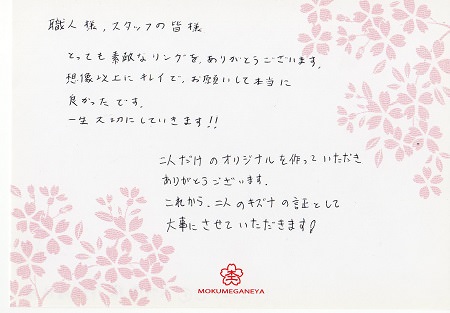 職人様、スタッフの皆様
とっても素敵なリングを、ありがとうございます。
想像以上にキレイで、お願いして本当に
良かったです。
一生大切にしていきます!!
二人だけのオリジナルを作っていただき
ありがとうございます。
これから、二人のキズナの証として
大事にさせていただきます!
MOKUMEGANEYA